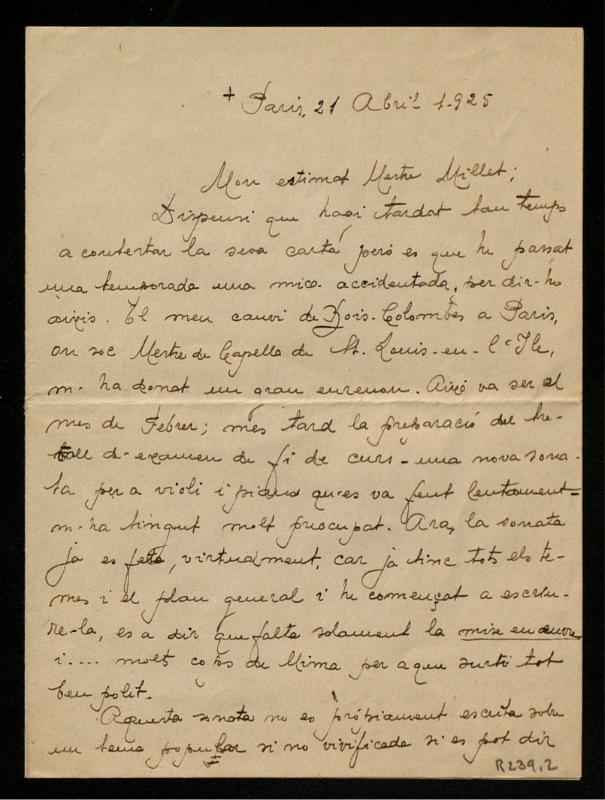 + Paris, 21 Abril 1.925
Mon estimat Mestre Millet;
Dispensi que hagi tardat tan temps
a contestar la seva carta, però es que he passat
una temporada una mica accidentada, per dir-ho
aixis. El meu canvi de Bois-Colombes a Paris,
on soc Mestre de Capella de St. Louis-en-l'Ile,
m-ha donat un gran enrenou. Això va ser el
mes de Febrer; més tard la preparació del tre-
ball d-examen de fi de curs - una nova sona-
ta per a violi i piano que-s va fent lentament -
m-ha tingut molt preocupat. Ara, la sonata
ja es feta, virtualment, car ja tinc tots els te-
mes i el plan general i he començat a escriu-
re-la, es a dir que falta solament la mise en œuvre
i.... molts cops de llima per a que surti tot
ben polit.
Aquesta sonata no es pròpiament escrita sobre
un tema popular si no vivificada si es pot dir
R239,2